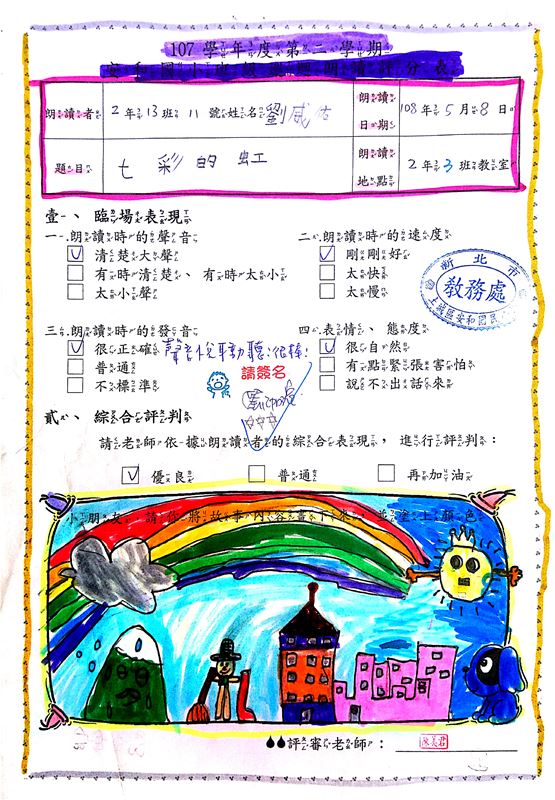 107學年度第二學期
安和國小班級說明朗讀評分表
朗讀者 2年13班11號姓名劉威佑 朗讀日期 108年5月8日
題目 七彩的虹 朗讀地點 2年3班教室
壹、臨場表現
一.朗讀時的聲音 二.朗讀時的速度
清楚大聲 剛剛好
有時清楚、有時太小 太快
太小聲 太慢
新北市
教務處
土城區安和國民小學
三.朗讀時的發音 四.表情、態度
很正確 聲音悅耳動聽!很棒! 很自然
普通 請簽名 有點緊張害怕
不標準 說不出話來
貳、綜合評判
請老師依據朗讀者的綜合表現,進行評判:
優良 普通 再加油
小朋友,請你將故事內容畫下來,並塗上顏色
評審老師: